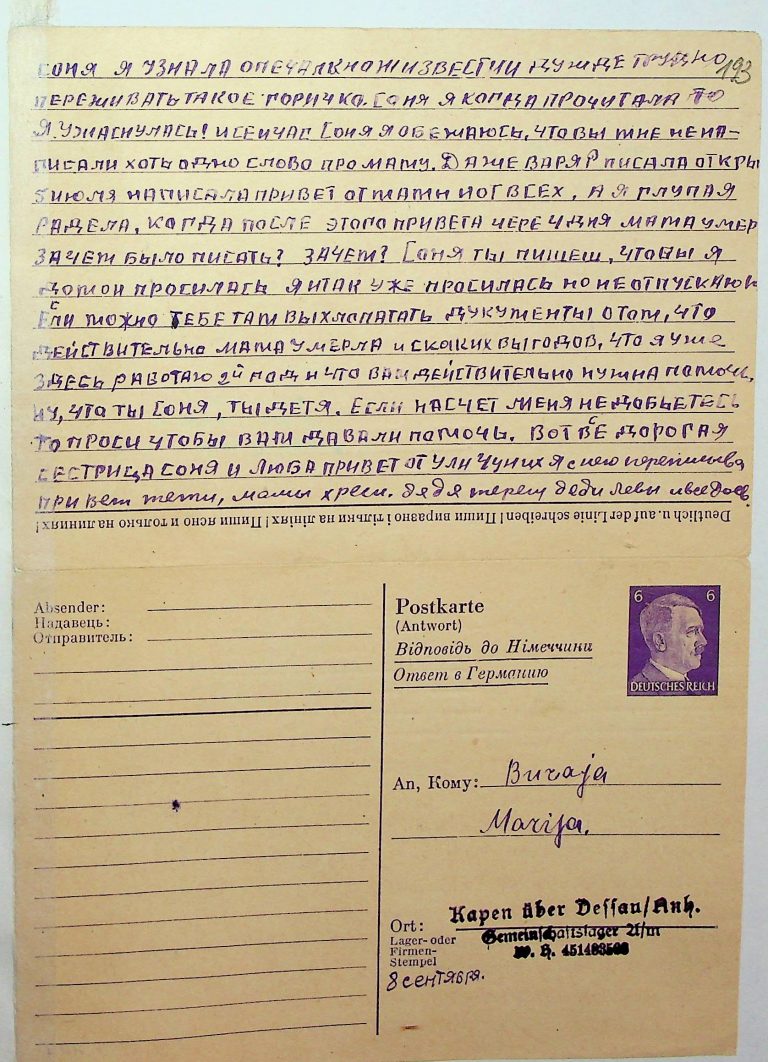 193
СОНЯ Я УЗНАЛА ОПЕЧАЛЬНОМ ИЗВЕСТИИ ДУЖДЕ ТРУДНО
ПЕРЕЖИВАТЬ ТАКОЕ ГОРИЧКО. СОНЯ Я КОГДА ПРОЧИТАЛА ТО
Я УЖАСНУЛАСЬ! И СЕЙЧАС СОНЯ Я ОБЕЖАЮСЬ, ЧТО ВЫ МНЕ НЕ НА-
ПИСАЛИ ХОТЬ ОДНО СЛОВО ПРО МАМУ. ДАЖЕ ВАРЯ ПИСАЛА ОТКРЫ
5 ИЮЛЯ НАПИСАЛА ПРИВЕТ ОТ МАМЫ И ОТ ВСЕХ, А Я ГЛУПАЯ
РАДЕЛА, КОГДА ПОСЛЕ ЭТОГО ПРИВЕТА ЧЕРЕ 4 ДНЯ МАМА УМЕР
ЗАЧЕМ БЫЛО ПИСАТЬ? ЗАЧЕМ? СОНЯ ТЫ ПИШЕШ, ЧТОБЫ Я
ДОМОЙ ПРОСИЛАСЬ Я И ТАК УЖЕ ПРОСИЛАСЬ НО НЕ ОТПУСКАЮТ
ЕСЛИ МОЖНО ТЕБЕ ТАМ ВЫХЛАПАТАТЬ ДУКУМЕНТЫ О ТОМ, ЧТО
ДЕЙСТВИТЕЛЬНО МАМА УМЕРЛА И СКАКИХ ВЫ ГОДОВ, ЧТО Я УЖЕ
ЗДЕСЬ РАБОТАЮ 2Й ГОД И ЧТО ВАМ ДЕЙСТВИТЕЛЬНО НУЖНА ПАМОЧЬ,
НУ, ЧТО ТЫ СОНЯ, ТЫ ДЕТЯ. ЕСЛИ НАСЧЕТ МЕНЯ НЕ ДОБЬЕТЕСЬ
ТО ПРОСИ ЧТОБЫ ВАМ ДАВАЛИ ПАМОЧЬ. ВОТ ВСЕ ДОРОГАЯ
СЕСТРИЦА СОНЯ И ЛЮБА ПРИВЕТ ОТ УЛИ ЧУНИХ Я с нею переписыва
привет тети, мамы хресн. дядя дяди Левы и все
Deutlich u. auf der Linie schreiben! Пиши виразно і тільки на лініях! Пиши ясно и только на линиях!
Absender:
Надавець:
Отправитель:
Postkarte
(Antwort)
Відповідь до Німеччини
Ответ в Германию
6 6
DEUTSCHES REICH
An, Кому: Buraja
Marija.
Ort: Kapen über Dessau/Anh.
Lager- oder Firmen-Stempel
Gemeinschaftslager
8 сентября.